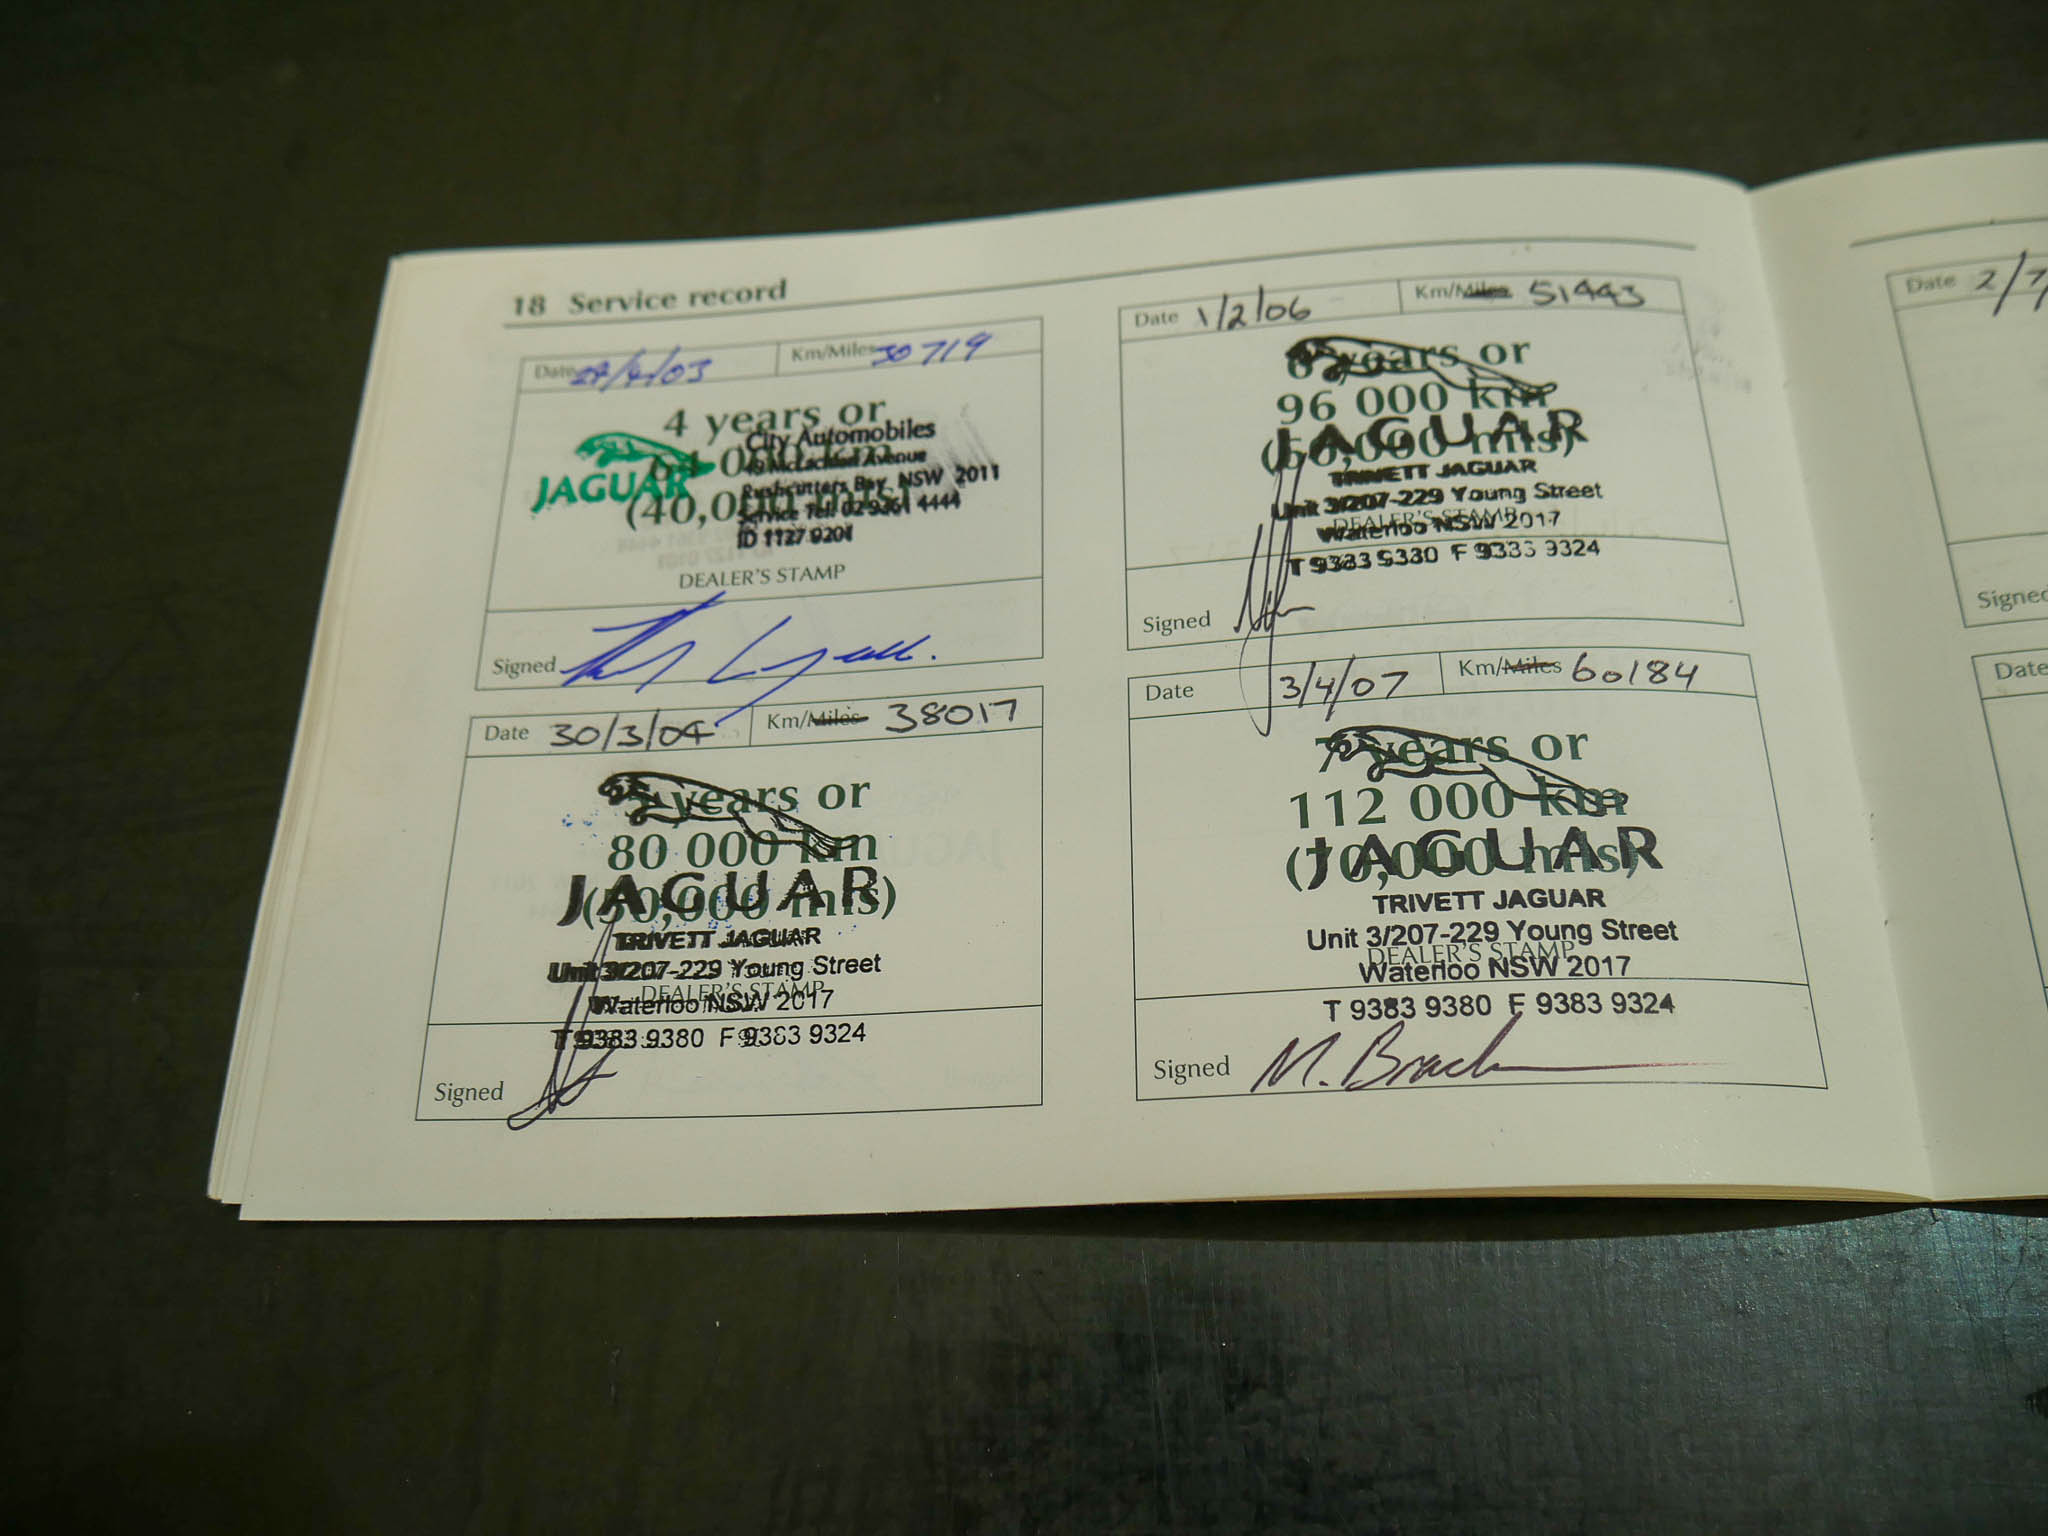 18 Service record
Date 29/4/03 Km/Miles 30719
4 years or
64 000 km
(40,000 mls)
JAGUAR
City Automobiles
49 McLachlan Avenue
Rushcutters Bay NSW 2011
Service Tel: 02 9361 4444
ID 1127 9201
DEALER'S STAMP
Signed
Date 30/3/04 Km/Miles 38017
5 years or
80 000 km
(50,000 mls)
JAGUAR
TRIVETT JAGUAR
Unit 3/207-229 Young Street
DEALER'S STAMP
Waterloo NSW 2017
T 9383 9380 F 9383 9324
Signed
Date 1/2/06 Km/Miles 51443
6 years or
96 000 km
(60,000 mls)
JAGUAR
TRIVETT JAGUAR
Unit 3/207-229 Young Street
DEALER'S STAMP
Waterloo NSW 2017
T 9383 9380 F 9383 9324
Signed
Date 3/4/07 Km/Miles 60184
7 years or
112 000 km
(70,000 mls)
JAGUAR
TRIVETT JAGUAR
Unit 3/207-229 Young Street
DEALER'S STAMP
Waterloo NSW 2017
T 9383 9380 F 9383 9324
Signed M. Brack
Date 2/7/
Signed
Date